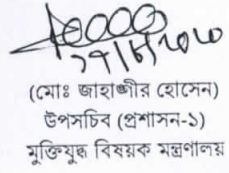 (মোঃ জাহাঙ্গীর হোসেন)
উপসচিব (প্রশাসন-১)
মুক্তিযুদ্ধ বিষয়ক মন্ত্রণালয়